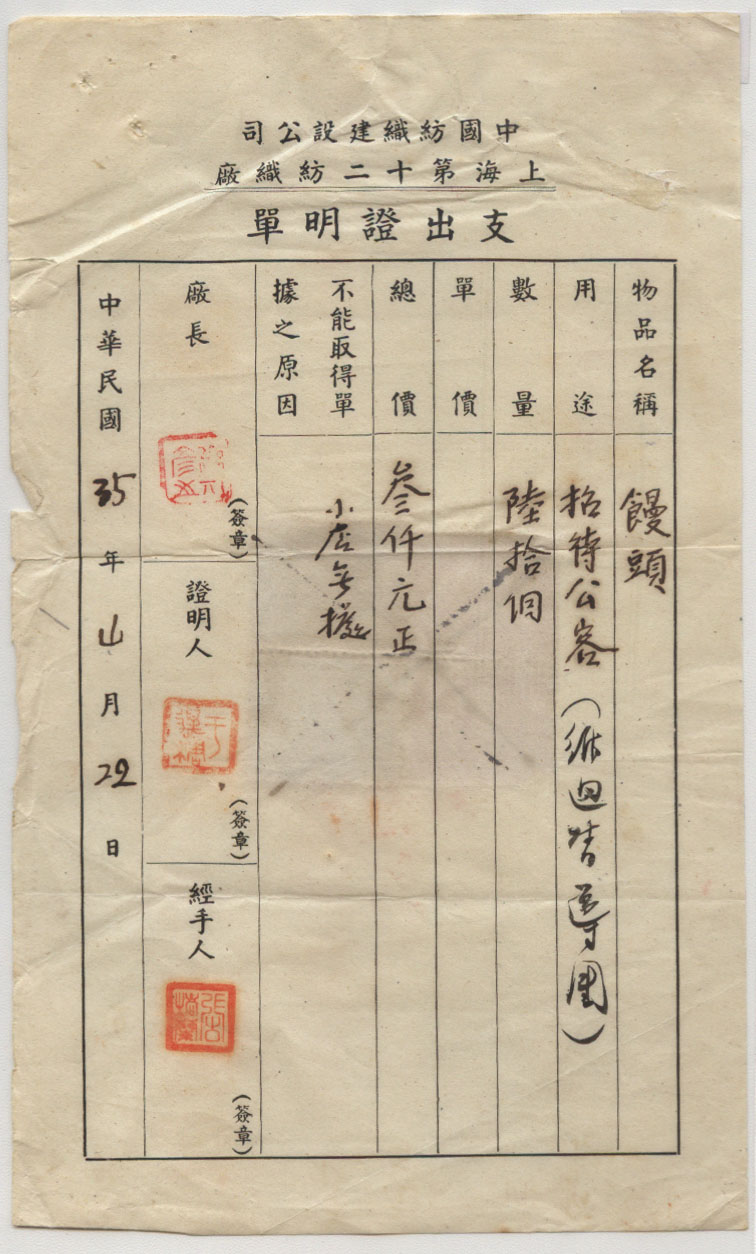 中國紡織建設公司
上海第十二紡織廠
支出證明單
物品名稱 饅頭
用途 招待公客
數量 陸拾個
單價
總價 叁仟元正
不能取得單據之原因 小店無據
廠長 (簽章)
證明人 (簽章)
經手人 (簽章)
中華民國35年 月29日